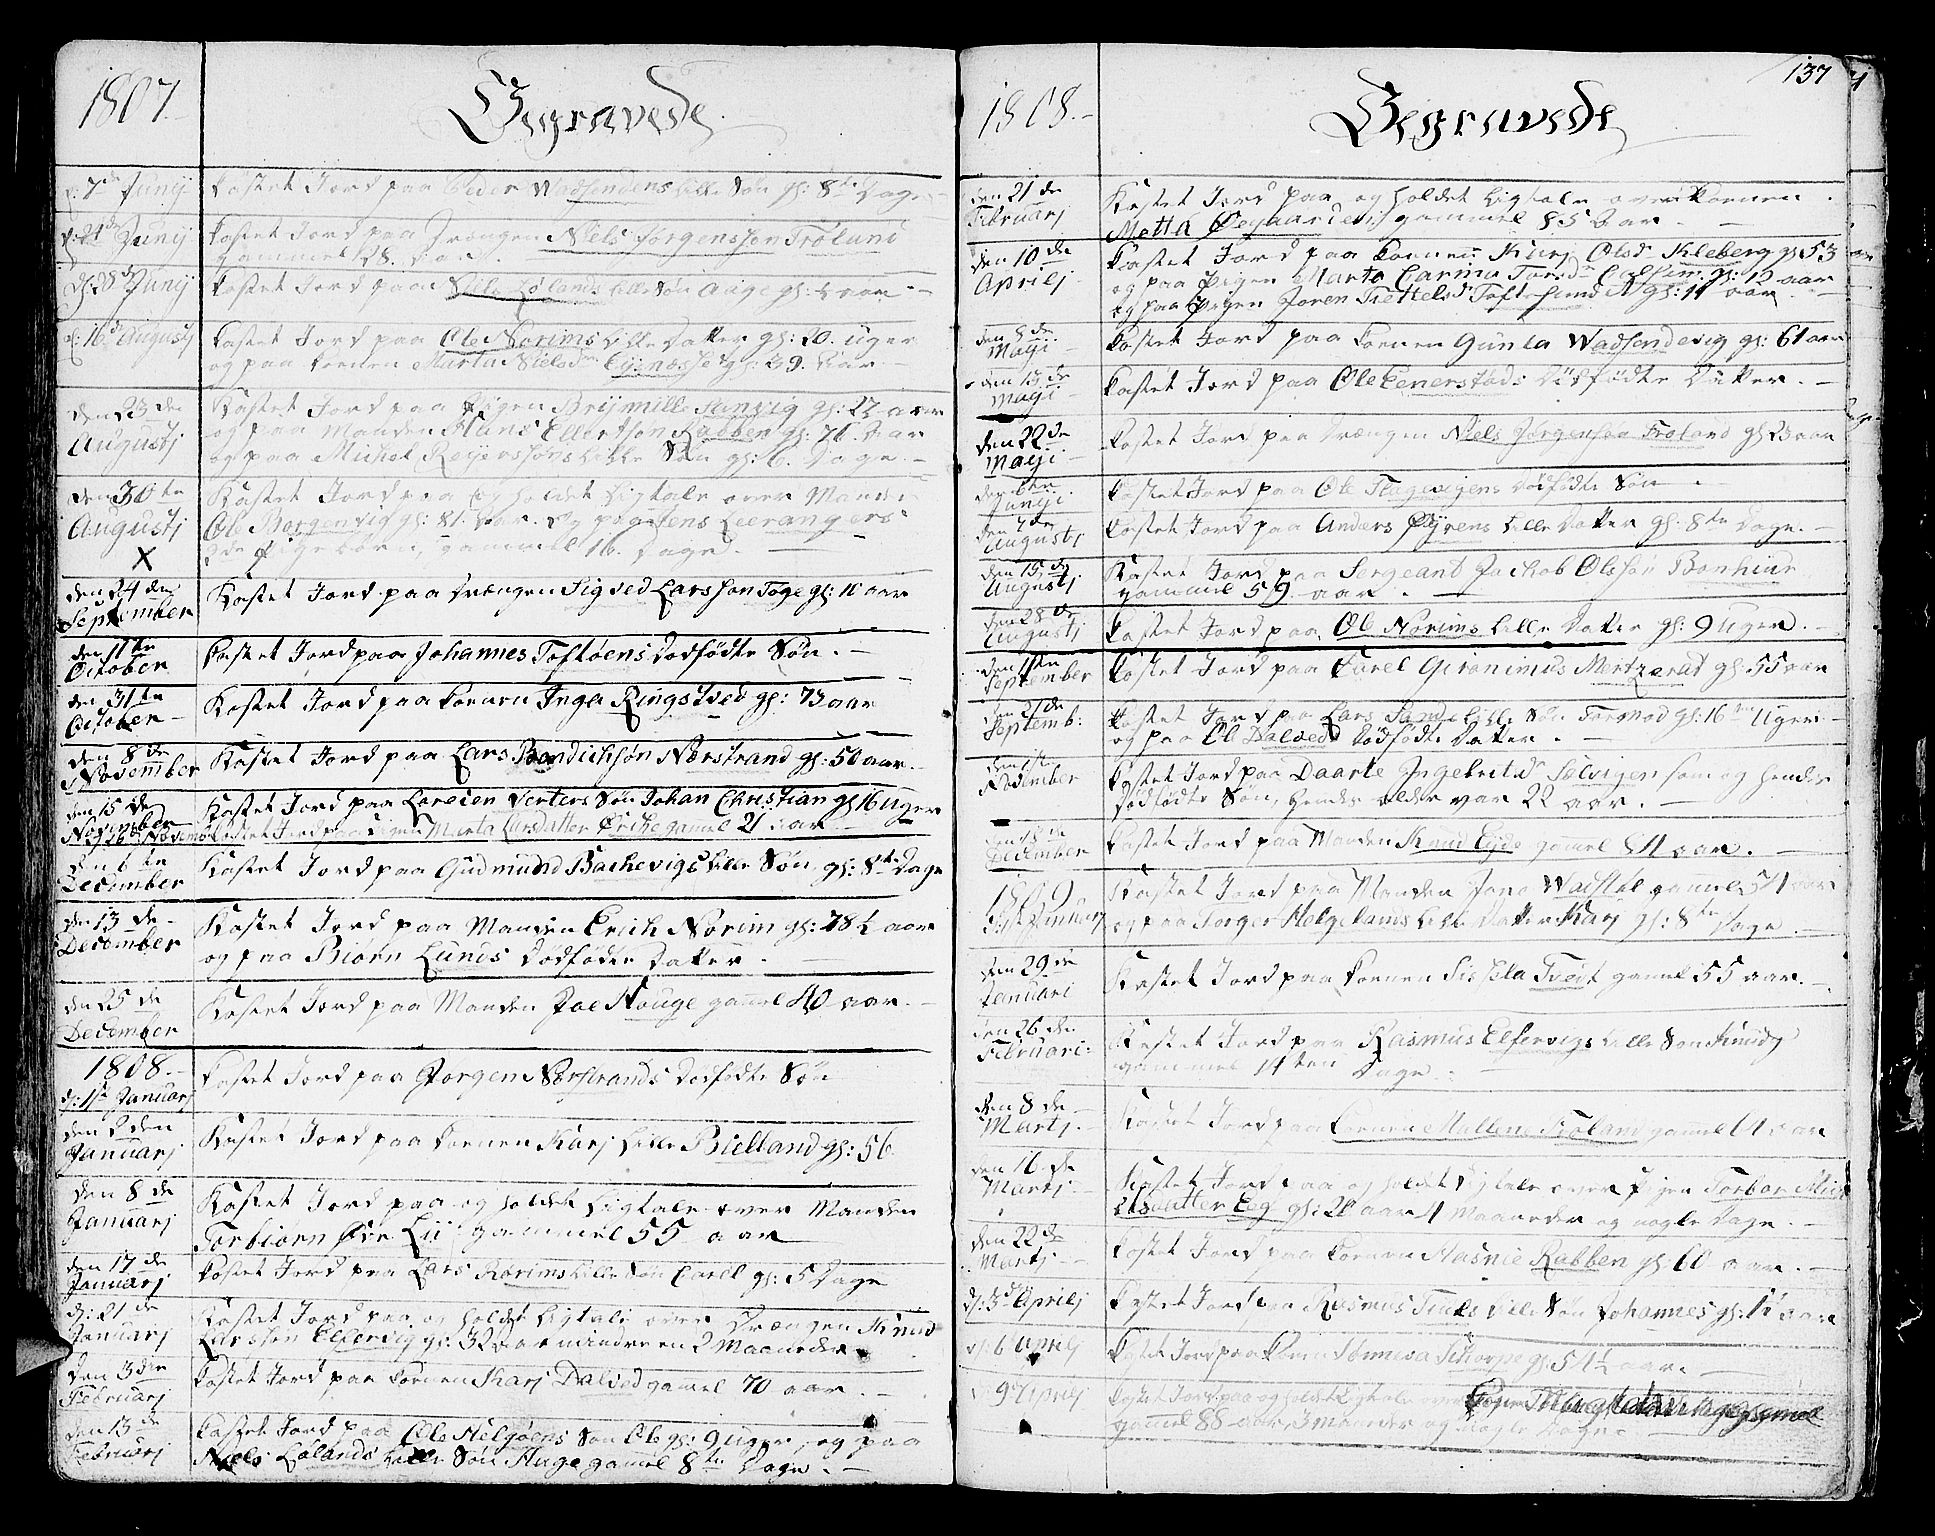 1807.
Begravede
d: 7de Junij Kastet Jord paa Peder Wadsendens Lille Søn gl: 8te Dage
d: 21de Junij Kastet Jord paa Drængen Niels Jørgensøn Frølund
gammel 28. Aar.
d: 28de Junij Kastet Jord paa Niels Lølands Lille Søn Aage gl: Aar
d: 16de Augustj Kastet Jord paa Ole Norims Lille Datter gl: 20. Uger
og paa Konen Marta Nielsdr gl: 39. Aar
den 23de Augustj Kastet Jord paa Pigen Brijmille Sandvig gl: 22 aar
og paa Manden Hans Ellertsøn Rabben gl: 76 Aar
og paa Michel Reijerssøns Lille Søn gl: 6. Dage.
den 30te Augustj Kastet Jord paa og holdet Ligtale over Manden
X
Ole Borgenvig gl: 81. Aar. og paa Jens Leerangers
Pigebørn, gammel 16. Dage.
den 24den September Kastet Jord paa Drængen Sigved Larsson Toge gl: 10 aar
den 11te October Kastet Jord paa Johannes Toftøens Dødfødte Søn.
den 31te October Kastet Jord paa Konen Inga Ringstved gl: 73 aar
den 8de November Kastet Jord paa Lars Bendichsøn Nerstrand gl: 50 aar.
den 15de November Kastet Jord paa Søn Johan Christian gl: 16 uger
26 November Kastet Jord paa Pigen Marta Larsdatter gamel 21 aar
den 6te December Kastet Jord paa Gudmund Bachevigs Lille Søn gl: 8te Dage
den 13de December Kastet Jord paa Manden Erich Norim gl: 78½ aar
og paa Biørn Lunds Dødfødte Datter.
den 25de December Kastet Jord paa Manden Joe Houge gamel 40 aar.
1808.
d: 1ste Januarj Kastet Jord paa Jørgen Nerstrands Dødfødte Søn
den 2den Januarj Kastet Jord paa Konen Karj Lille Bielland gl: 56.
den 8de Januarj Kastet Jord paa og holdet Ligtale over Manden
Torbiørn Øvre Lii gammel 55 aar
den 17de Januarj Kastet Jord paa Lars Norims Lille Søn Carel gl: 5 Dage
d: 21de Januarj Kastet Jord paa og holdet Ligtale over Drængen Knud
Larssøn Elfervig gl: 32 aar mindre en 2 Maaneder.
den 3den Februarj Kastet Jord paa Konen Karj Dalved gamel 70 aar.
den 13de Februarj Kastet Jord paa Ole Helgøens Søn Ole gl: 9 Uger, og paa
Niels Lølands Lille Søn Aage gamel 8te Dage.
137
1808.
Begravede
den 21de Februarj Kastet Jord paa og holdet Ligtale over Konen
Metta Øegaarden gammel 85 Aar
den 10de Aprilj Kastet Jord paa Konen Karj Olsdr Kleberg gl: 53 aar
og paa Pigen Marta Carina gl: 12 aar
og paa Pigen Joren Tiettelsdr Toftesund gl: 11 aar
den 8de Maiji Kastet Jord paa Konen Gunla Wadsendvig gl: 61 aar
den 15de Maiji Kastet Jord paa Ole Enerstøds Dødfødte Datter.
den 22de Maiji Kastet Jord paa Drængen Niels Jørgensøn Frøland gl: 23 aar
den 6te Junij Kastet Jord paa Ole Dødfødte Søn.
den 7de Augustj Kastet Jord paa Anders Lille Datter gl: 8te Dage.
den 15de Augustj Kastet Jord paa Sergeant Jachob Olssøn Bonhiur
gammel 59 aar.
den 28de Augustj Kastet Jord paa Ole Norims Lille Datter gl: 9 uger.
den 11te September Kastet Jord paa Karel Gironimus Mertzerat gl: 55 aar
den 21de Septemb: Kastet Jord paa Lars Sands Lille Søn Tormod gl: 16ten Uger
og paa Ole Dalveds Dødfødte Datter.
den 1ste November Kastet Jord paa Daarte Ingebritsdr Solvigen som og hendes
Dødfødte Søn, hendes alder var 22 aar.
den 18de December Kastet Jord paa Manden Knud Eyde gamel 81 aar.
1809
Januarj Kastet Jord paa Manden Jens Wadstøl gammel 54 aar
og paa Jorger Helgelands Lille Datter Karj gl: 8te Dage.
den 29de Januarj Kastet Jord paa Konen Sissela Tvedt gamel 55 aar.
den 26de Februari: Kastet Jord paa Rasmus Elfervigs Lille Søn Knudz
gammel 14ten Dage.
den 8de Martj. Kastet Jord paa Konen Mallene Frøland gamel aar
den 16de Martj. Kastet Jord paa og holdet Ligtale over Pigen Torbor Mich
elsdatter Eeg gl: 20 aar 4 Maaneder og nogle Dage.
den 22de Martj Kastet Jord paa Konen Rabben gl: 60 aar.
d: 3de Aprilj Kastet Jord paa Rasmus Lille Søn Johannes gl: 1½ aar
d: 6 Aprilj Kastet Jord paa Konen Sønneva Schorpe gl: 54½ aar.
d: 9de Aprilj Kastet Jord paa og holdet Ligtale over Pigen
gamel 88 aar, 3 maaneder og nogle Dage.